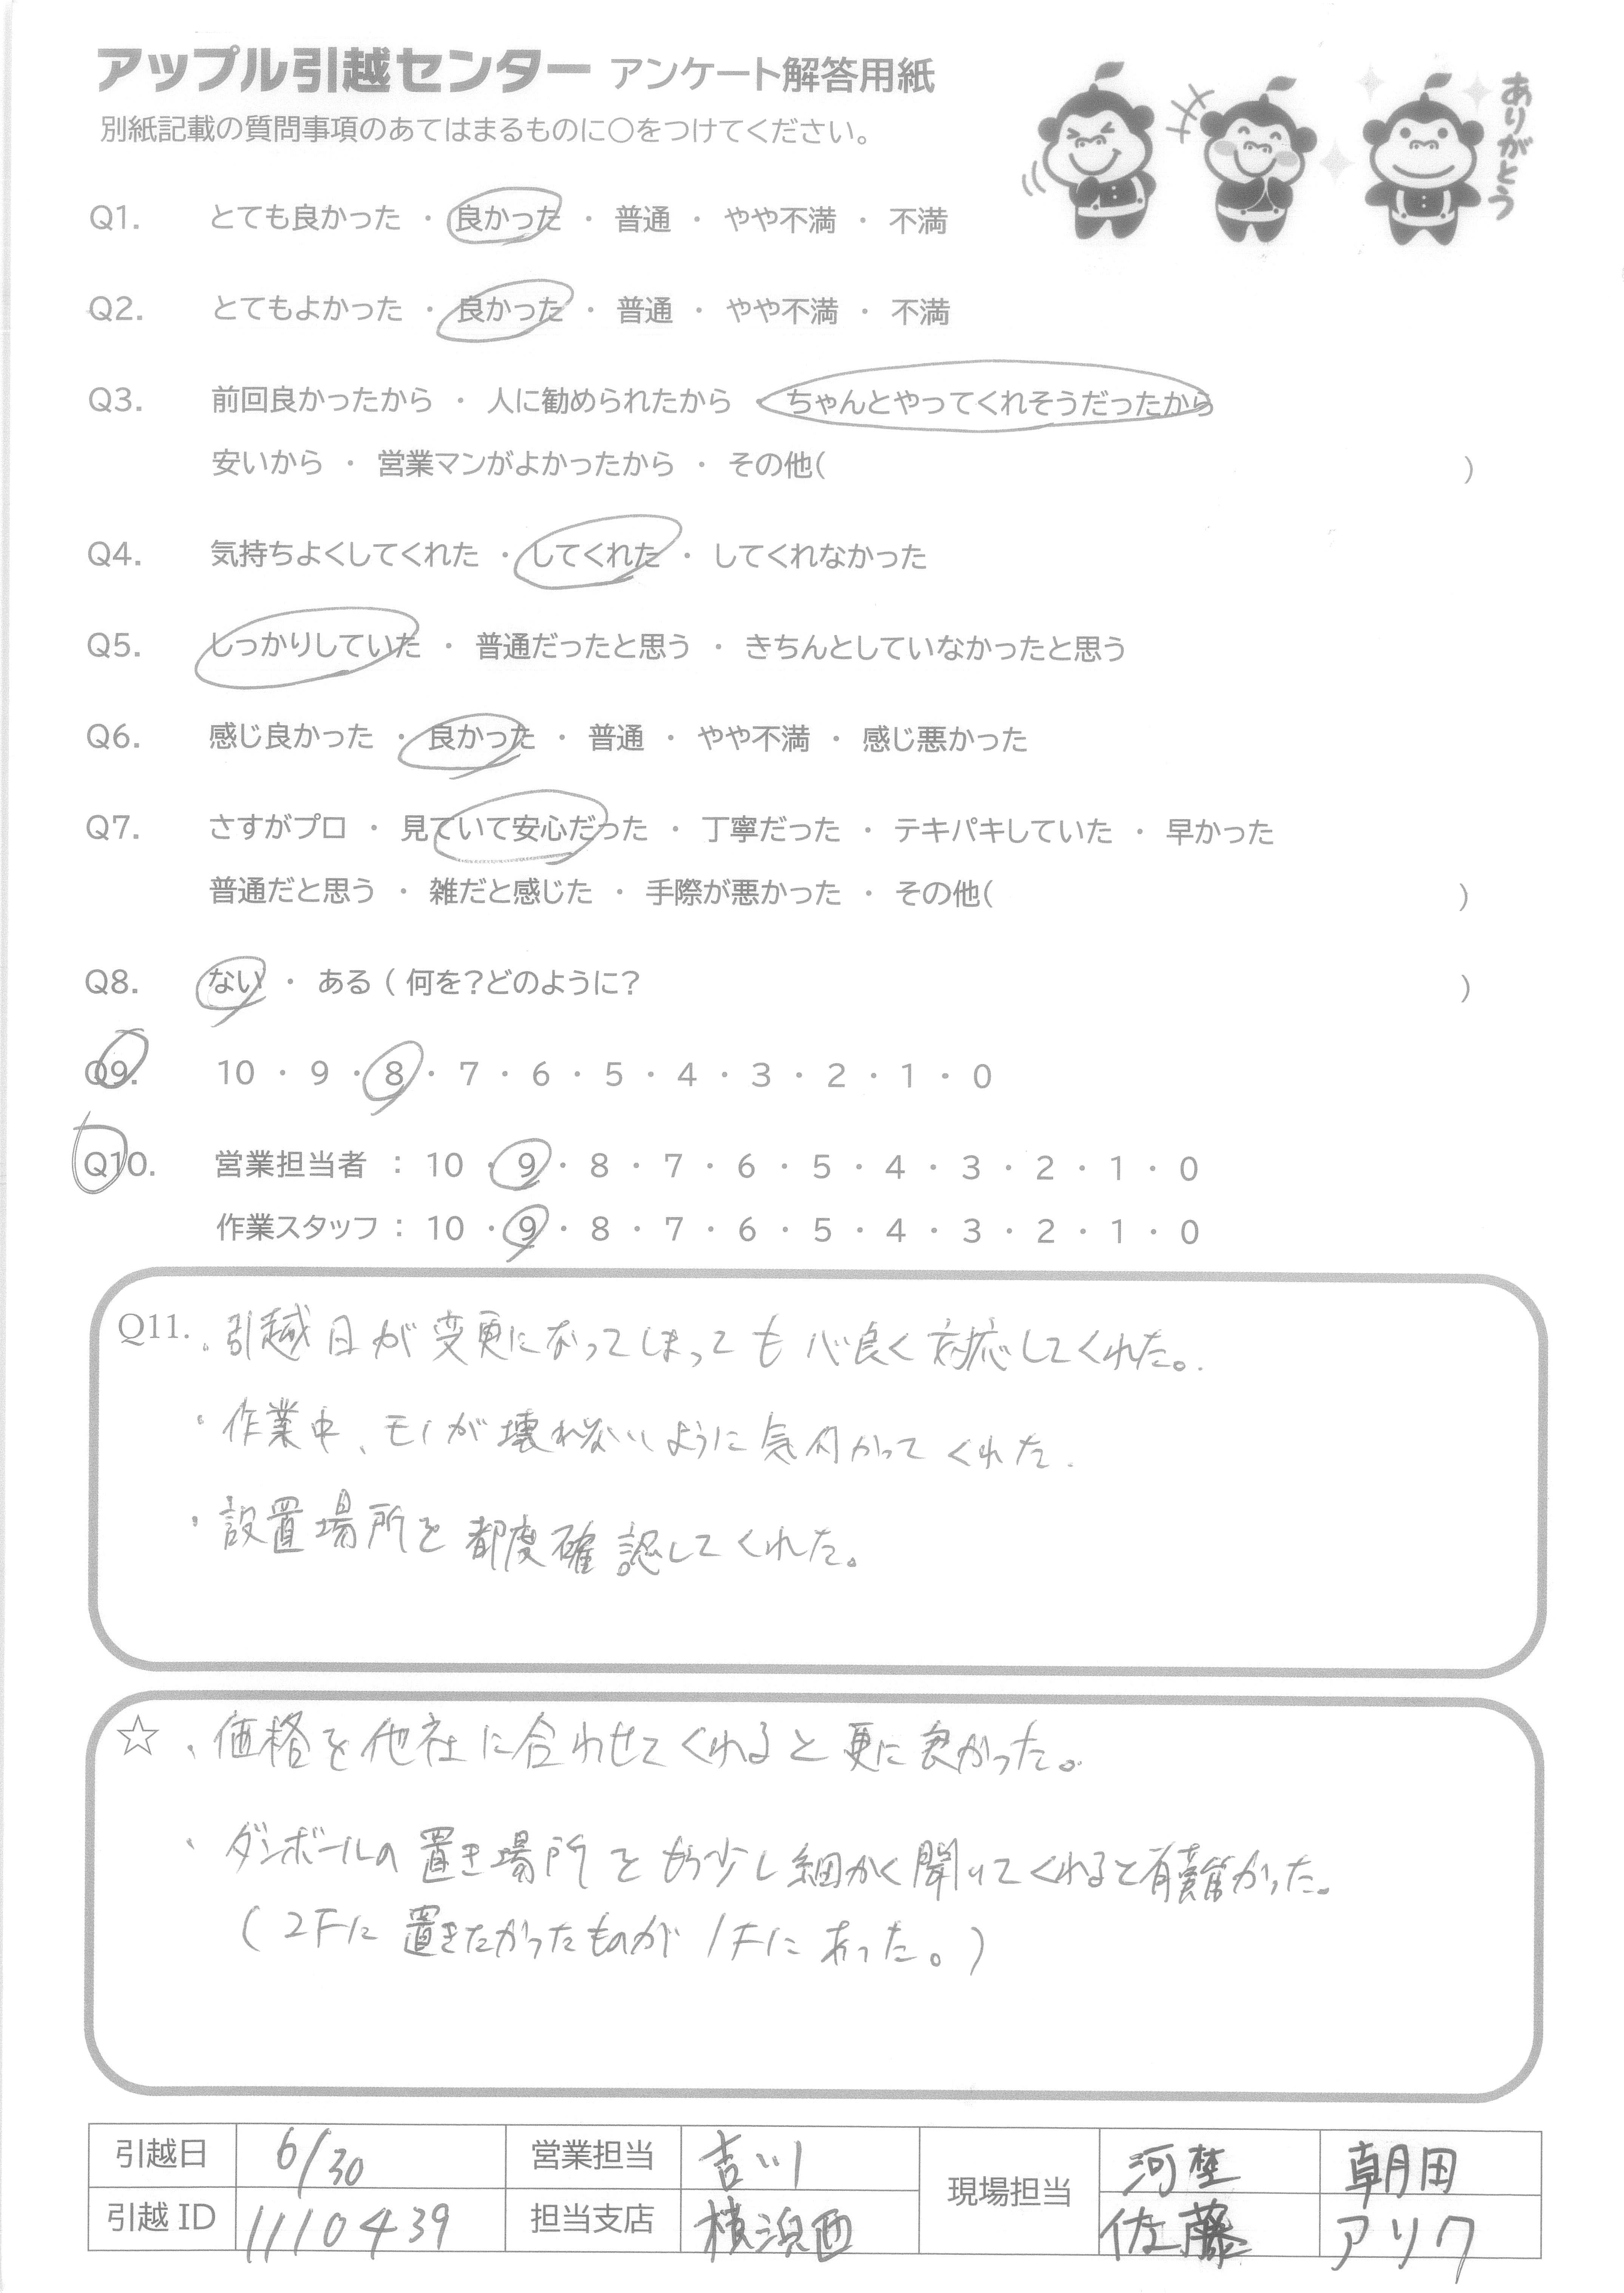 アップル引越センター アンケート解答用紙
別紙記載の質問事項のあてはまるものに○をつけてください。
ありがとう
Q1. とても良かった ・ 良かった ・ 普通 ・ やや不満 ・ 不満
Q2. とてもよかった ・ 良かった ・ 普通 ・ やや不満 ・ 不満
Q3. 前回良かったから ・ 人に勧められたから ・ ちゃんとやってくれそうだったから
安いから ・ 営業マンがよかったから ・ その他( )
Q4. 気持ちよくしてくれた ・ してくれた ・ してくれなかった
Q5. しっかりしていた ・ 普通だったと思う ・ きちんとしていなかったと思う
Q6. 感じ良かった ・ 良かった ・ 普通 ・ やや不満 ・ 感じ悪かった
Q7. さすがプロ ・ 見ていて安心だった ・ 丁寧だった ・ テキパキしていた ・ 早かった
普通だと思う ・ 雑だと感じた ・ 手際が悪かった ・ その他( )
Q8. ない ・ ある ( 何を?どのように? )
Q9. 10 ・ 9 ・ 8 ・ 7 ・ 6 ・ 5 ・ 4 ・ 3 ・ 2 ・ 1 ・ 0
Q10. 営業担当者 : 10 ・ 9 ・ 8 ・ 7 ・ 6 ・ 5 ・ 4 ・ 3 ・ 2 ・ 1 ・ 0
作業スタッフ : 10 ・ 9 ・ 8 ・ 7 ・ 6 ・ 5 ・ 4 ・ 3 ・ 2 ・ 1 ・ 0
Q11. ・引越日が変更になってしまっても心良く対応してくれた。
・作業中、モノが壊れないように気付かってくれた.
・設置場所を都度確認してくれた。
☆ ・価格を他社に合わせてくれると更に良かった。
・ダンボールの置き場所をもう少し細かく聞いてくれると有難かった。
(2Fに置きたかったものが1Fにあった。)
引越日 6/30 営業担当 吉川 現場担当 河埜 朝田
引越ID 1110439 担当支店 横浜西 佐藤 アリク